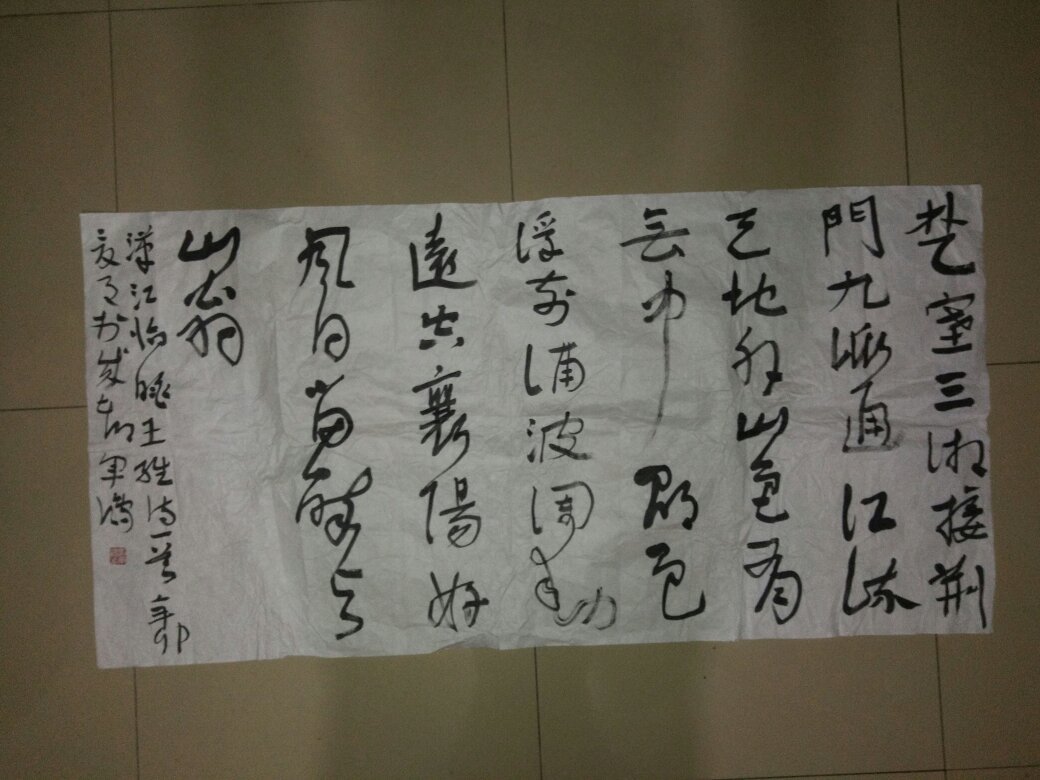 楚塞三湘接荆
門九派通江流
天地外山色有
無中郡邑
浮前浦波澜动
遠空襄陽好
風日留醉与
山翁
漢江临眺王维诗一首辛卯
夏月於成都军